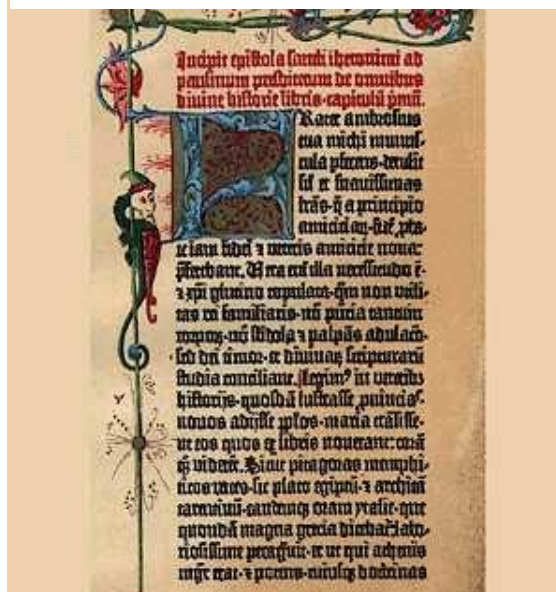 Incipit epistola sancti iheronimi ad
paulinum presbiterum de omnibus
divine historie libris·capitulū p̄mū.
FRater ambrosius
tua michi munus-
cula p̄ferens·detulit
sil̄ et suavissimas
lr̄as·q̄ a principio
amiciciaꝝ·fidē ꝓba-
te iam fidei ⁊ veteris amicicie nova:
p̄ferebant. Vera em̄ illa necessitudo ē·
⁊ xp̄i glutino copulata·q̄m non utili-
tas rei familiaris·nō p̄ncia tantum
corpoꝝ·nō s̄bdola ⁊ palpās adulacō·
sed dei timor·et divinaꝝ scripturarū
studia conciliant. Legim⁹ in veterib⁹
historijs·quosdā lustrasse ꝓvincias·
novos adijsse pl̄os·maria trāsisse·
ut eos quos ex libris noverant: corā
q̄ȝ viderēt. Sicut pitagoras memphi-
ticos vates·sic plato egiptū·⁊ architā
tarentinū·eandemq̄ȝ oram ytalie·que
quondā magna grecia dicebat᷑: labo-
riosissime peragvit·et ut qui athenis
mgr̄ erat·⁊ potens·cuiusq̄ȝ doctrinas